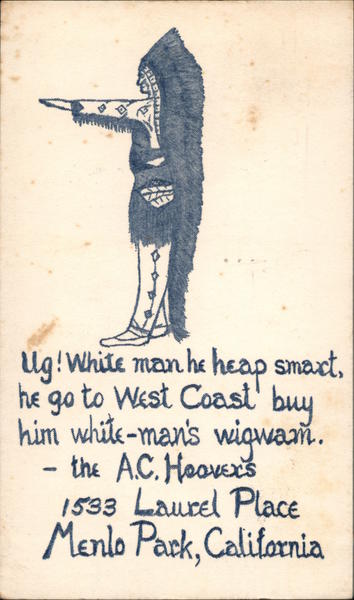 Ug! White man he heap smart,
he go to West Coast buy
him white-man's wigwam.
- the A.C. Hoovers
1533 Laurel Place
Menlo Park, California